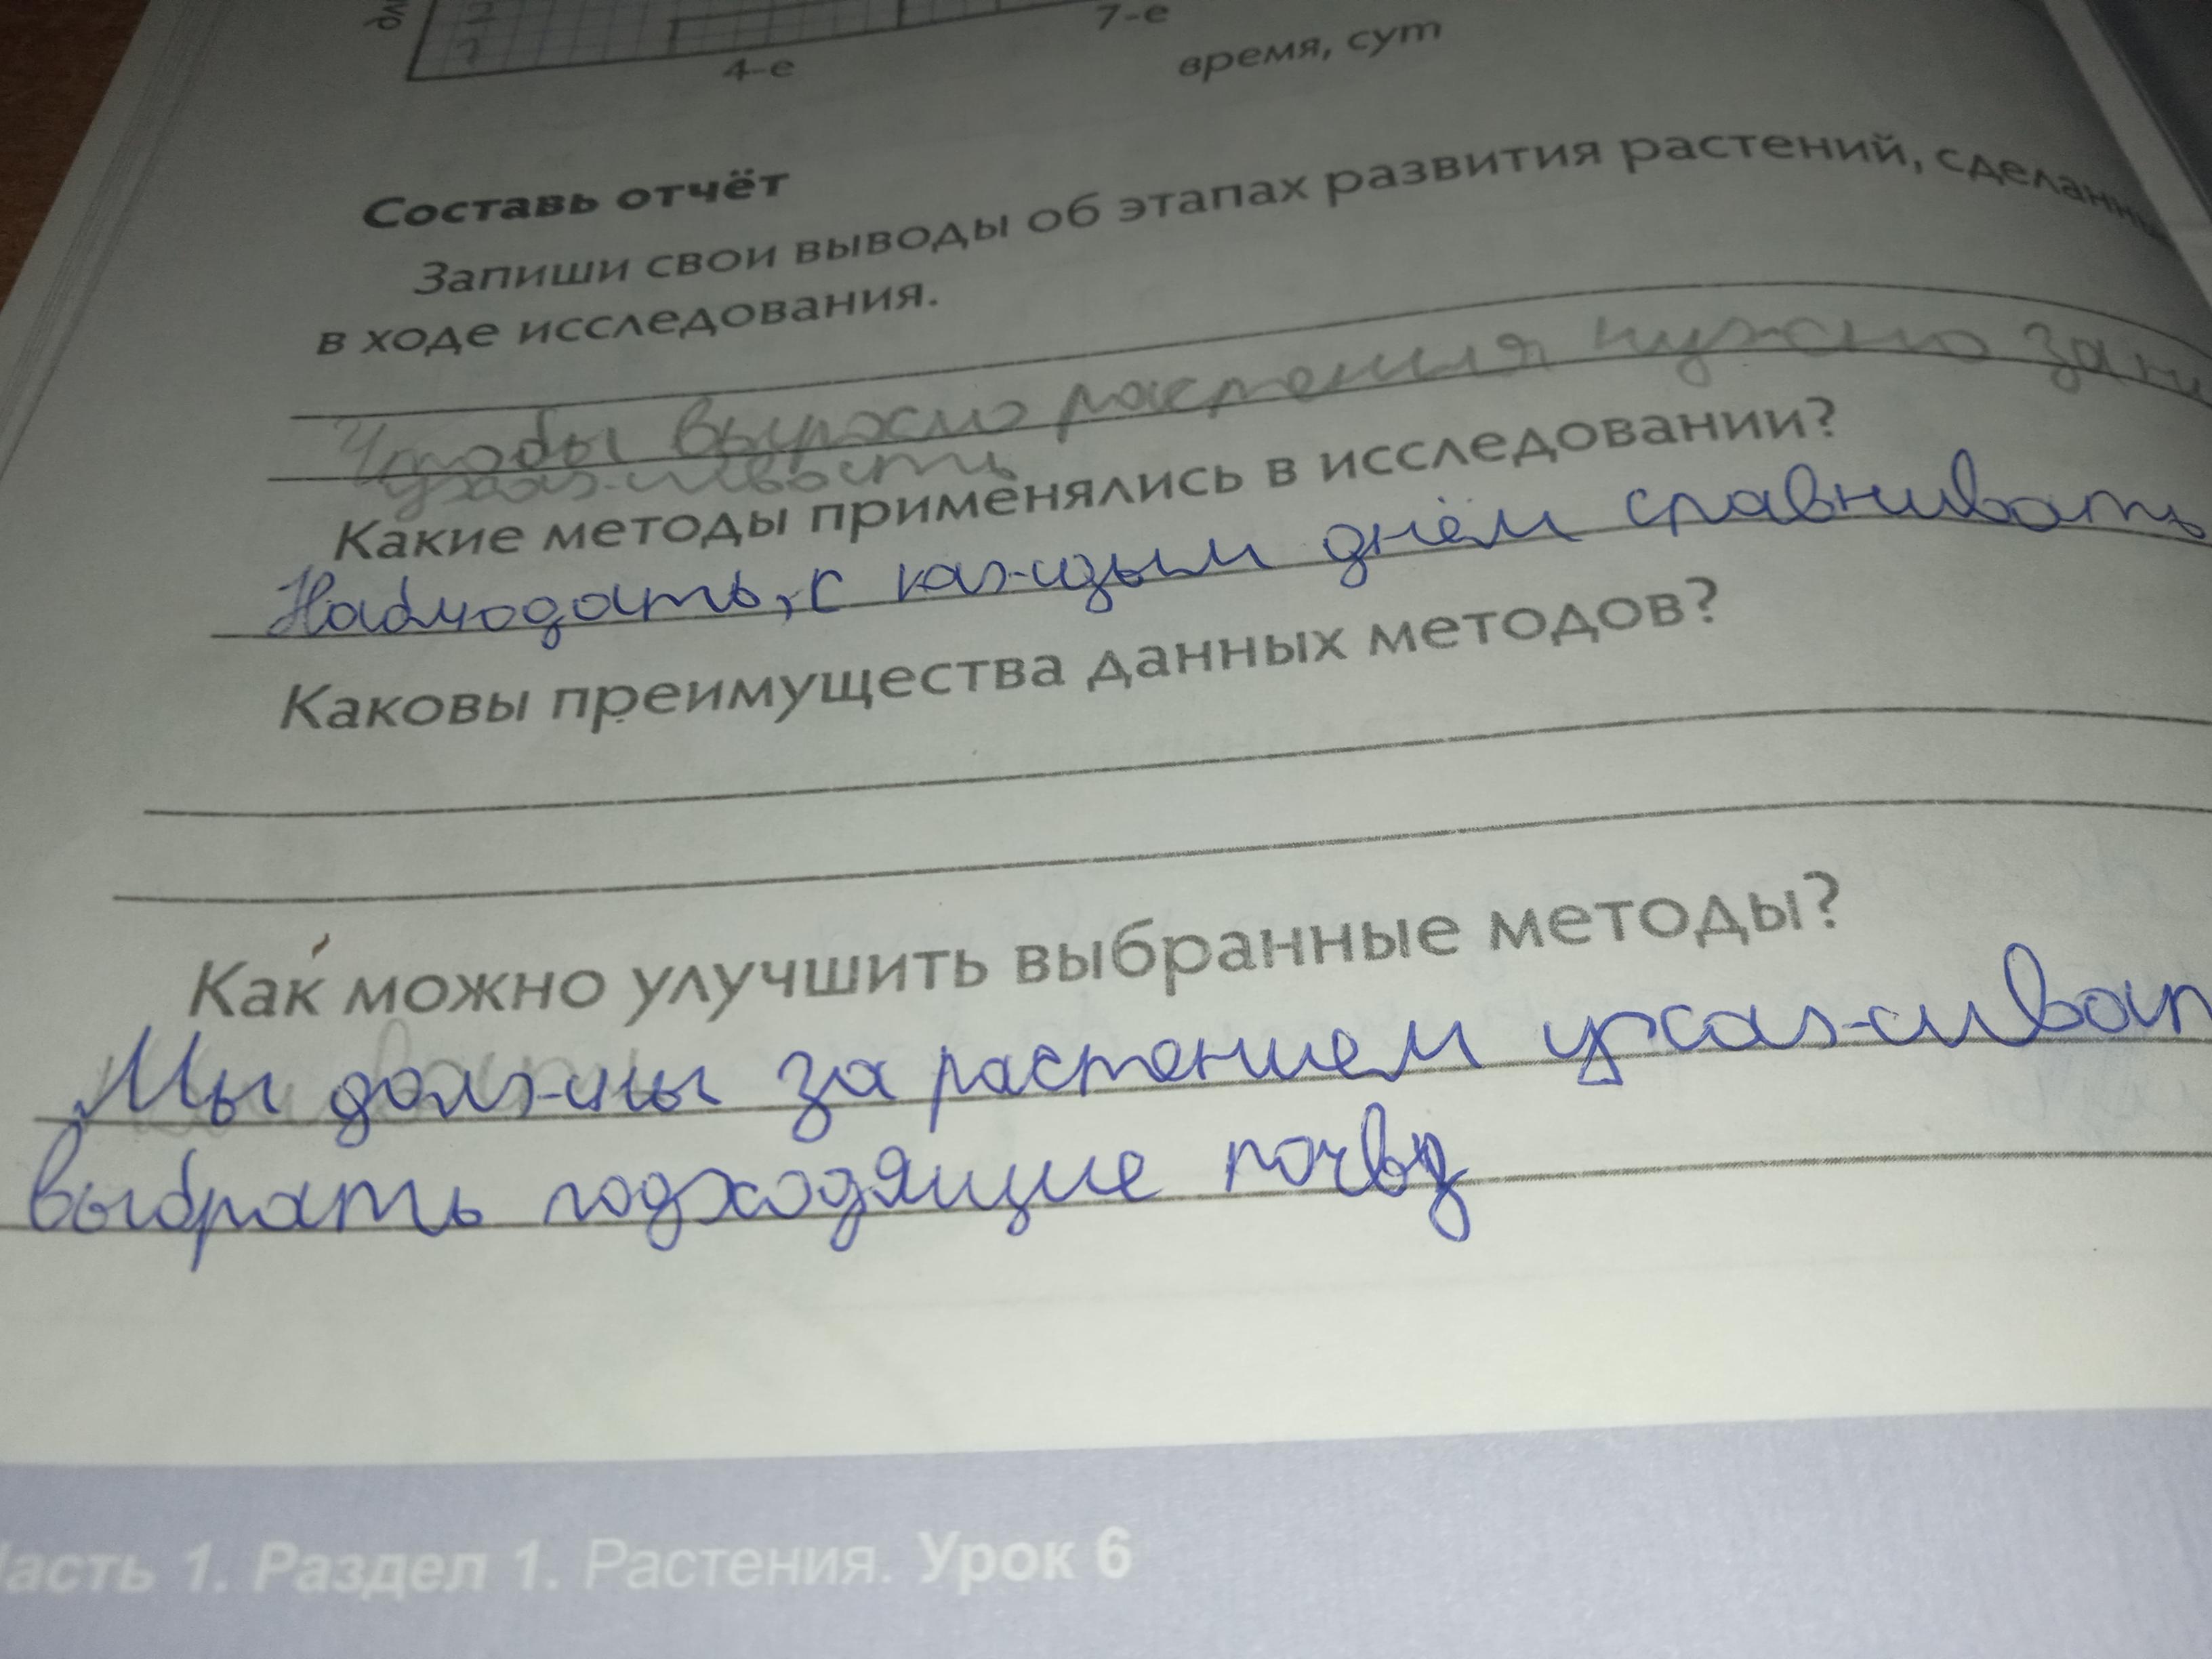 4-е
7-е
время, сут
Составь отчёт
Запиши свои выводы об этапах развития растений,
в ходе исследования.
Чтобы выросло растения нужно
ухаживать
Какие методы применялись в исследовании?
Наблюдать, с каждым днём сравнивать
Каковы преимущества данных методов?
Как можно улучшить выбранные методы?
Мы должны за растением
выбрать подходящие
Часть 1. Раздел 1. Растения. Урок 6